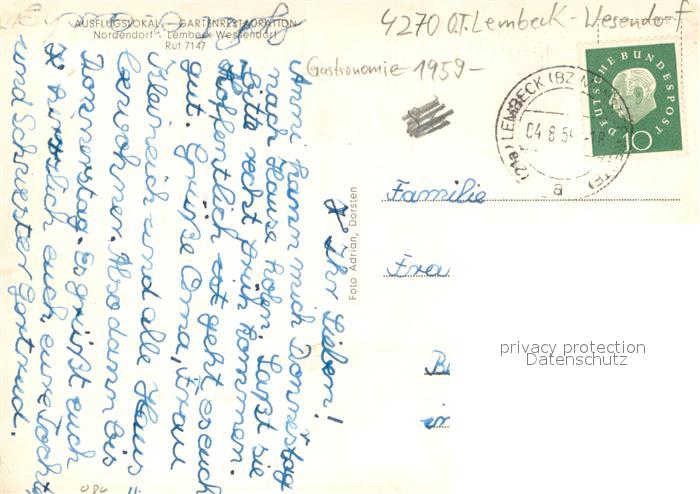 AUSFLUGSLOKAL - GARTENRESTAURATION
Nordendorf - Lembeck Wessendorf
Ruf 7147
4270 OT. Lembeck-Wesendorf
Gastronomie 1959-
(21a) LEMBECK (BZ
04.8.59.-18
a
DEUTSCHE BUNDESPOST
10
Ihr Lieben!
Anni kann mich Donnerstag
nach Hause holen. Laßt sie
bitte recht früh kommen.
Hoffentlich ist geht es euch
gut. Grüße Oma, Frau
Kleineich und alle Haus
bewohner. Also dann bis
Donnerstag. Es grüßt euch
herzlich euch eure Tochter
und Schwester Gertrud.
Foto Adrian, Dorsten
Familie
Frau
privacy protection
Datenschutz